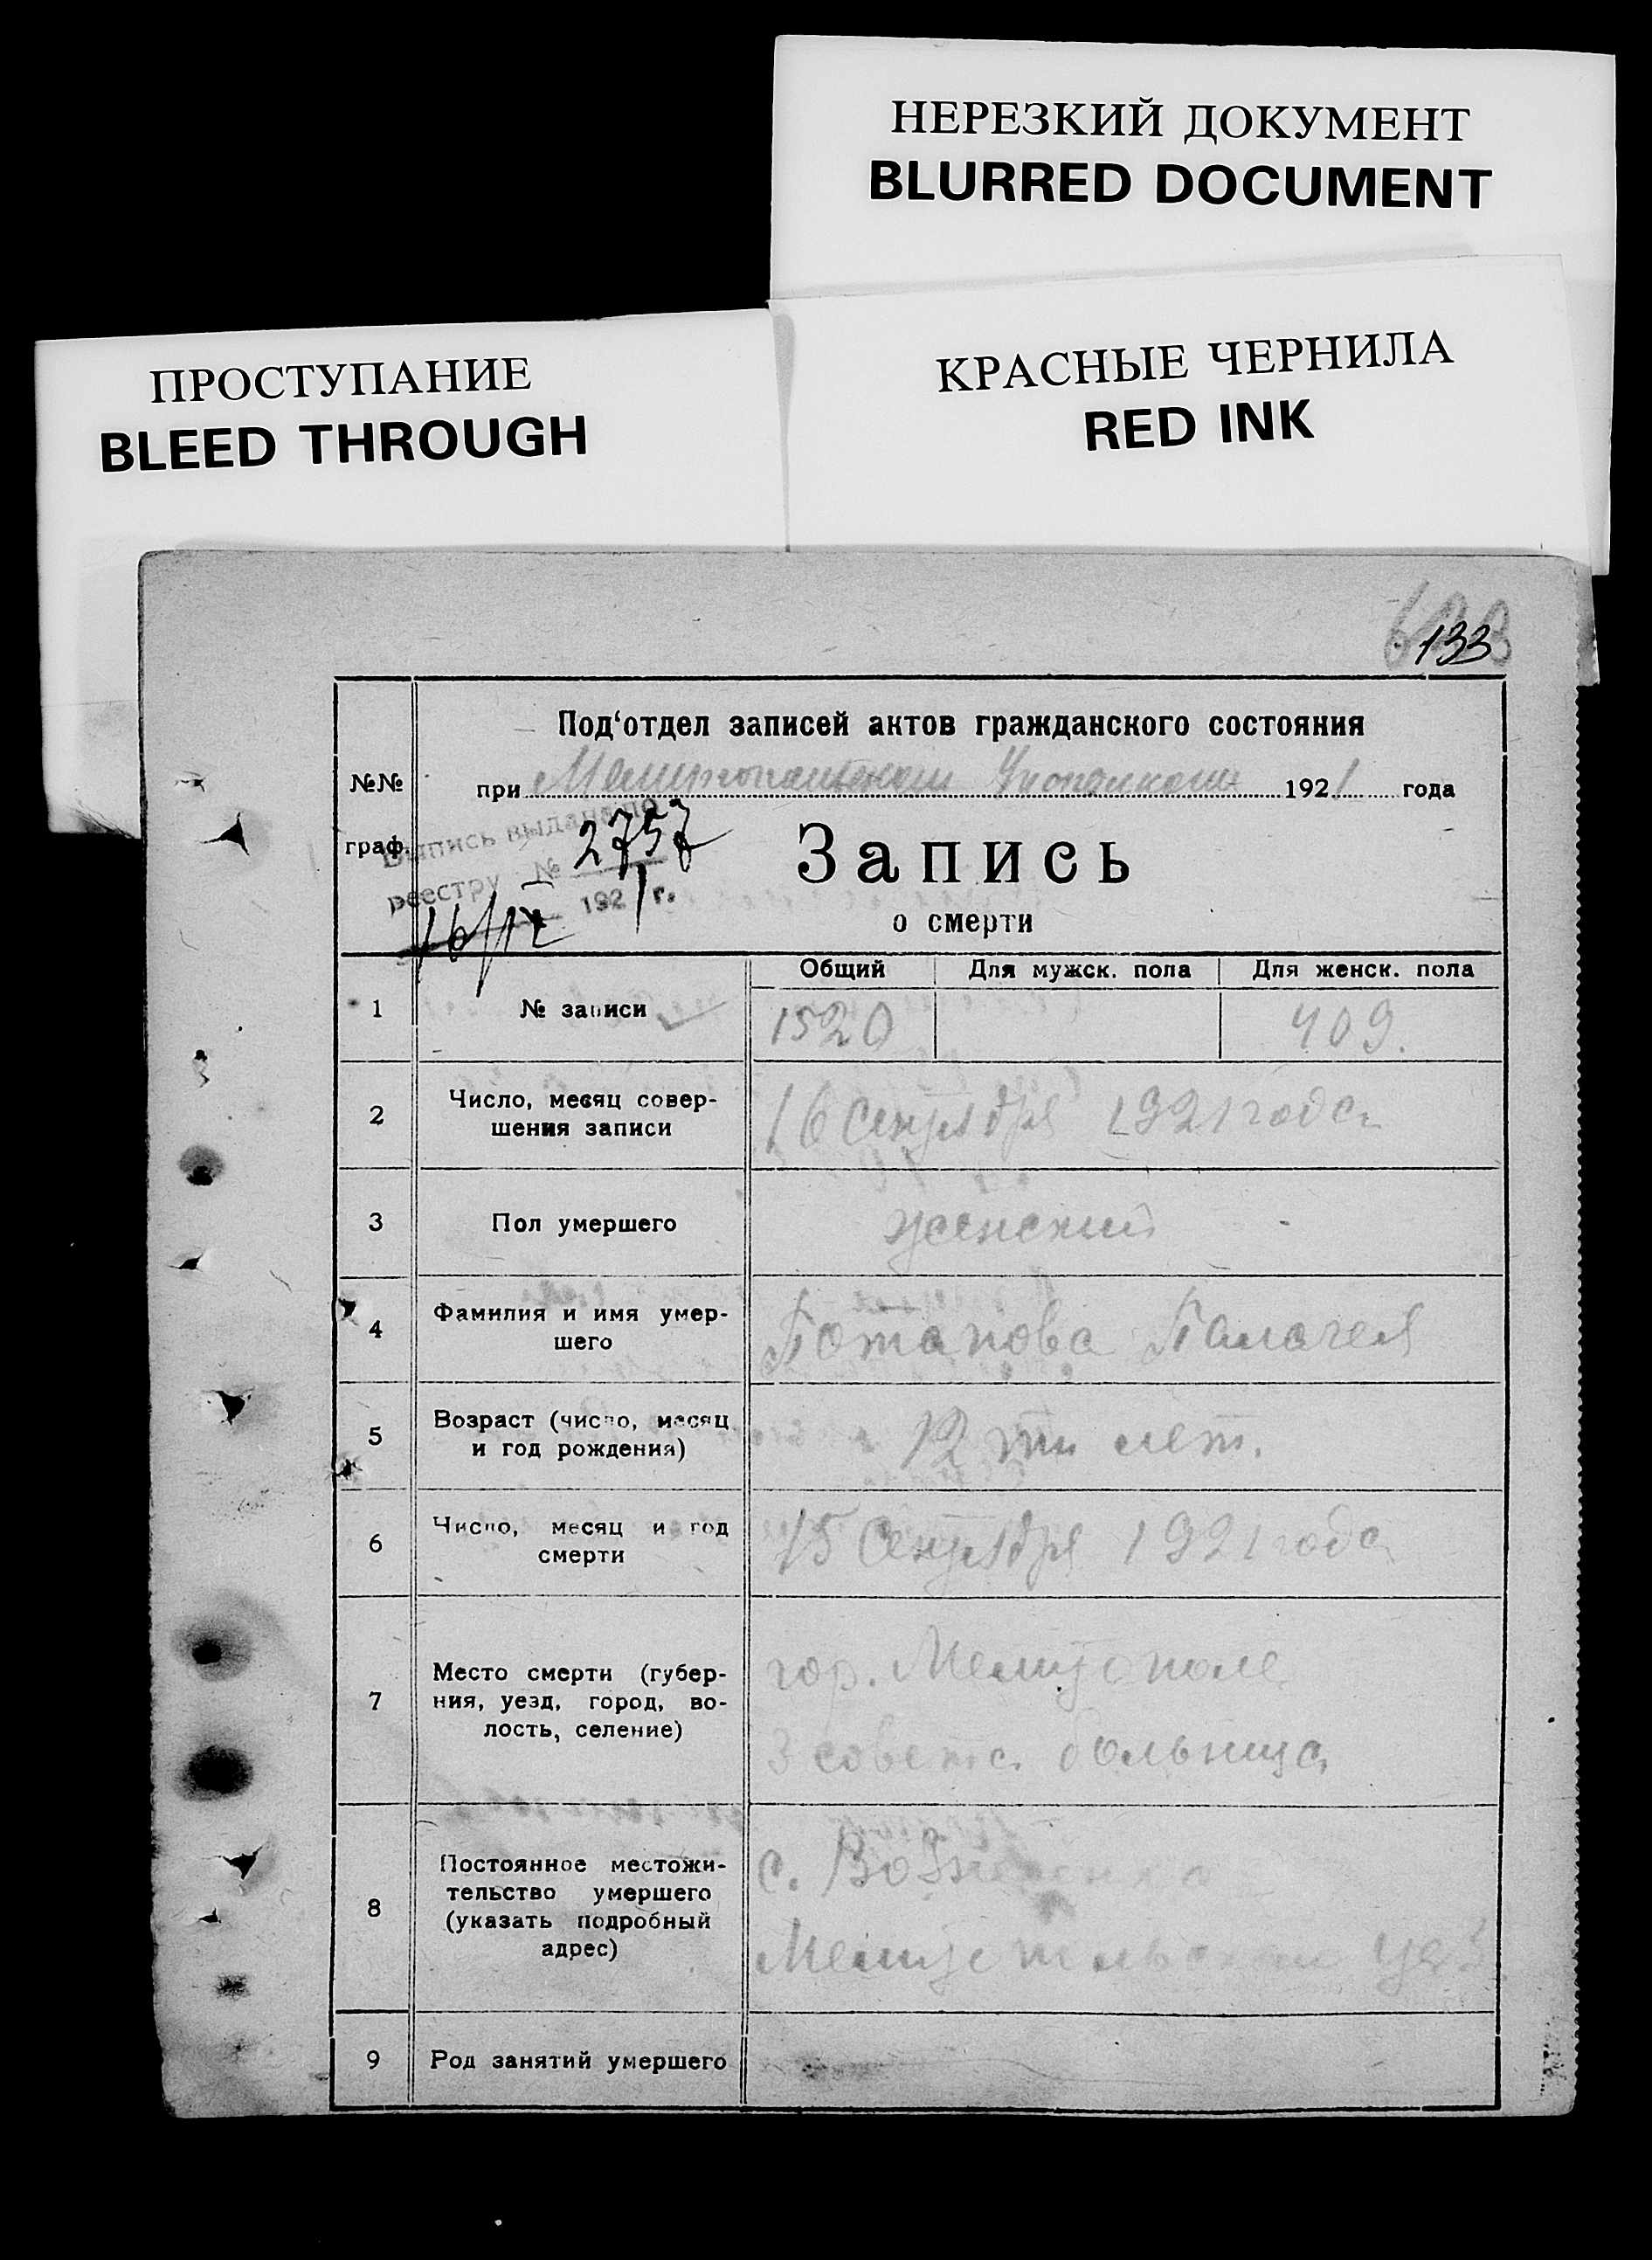 НЕРЕЗКИЙ ДОКУМЕНТ
BLURRED DOCUMENT
ПРОСТУПАНИЕ
BLEED THROUGH
КРАСНЫЕ ЧЕРНИЛА
RED INK
133
№№ граф.
Под‘отдел записей актов гражданского состояния
при Мелитопольском 1921 года
Выпись выдана по
реестру № 2757
16/IX 1921 г.
Запись
о смерти
Общий Для мужск. пола Для женск. пола
1 № записи 1520 409.
2 Число, месяц совер-
шения записи 16 Сентября 1921 года
3 Пол умершего женский
4 Фамилия и имя умер-
шего Потапова Палагея
5 Возраст (число, месяц
и год рождения) 12 ти лет.
6 Число, месяц и год
смерти 15 Сентября 1921 года
7 Место смерти (губер-
ния, уезд, город, во-
лость, селение)
гор. Мелитополе
3 советс. больница
8 Постоянное местожи-
тельство умершего
(указать подробный
адрес)
с.
9 Род занятий умершего